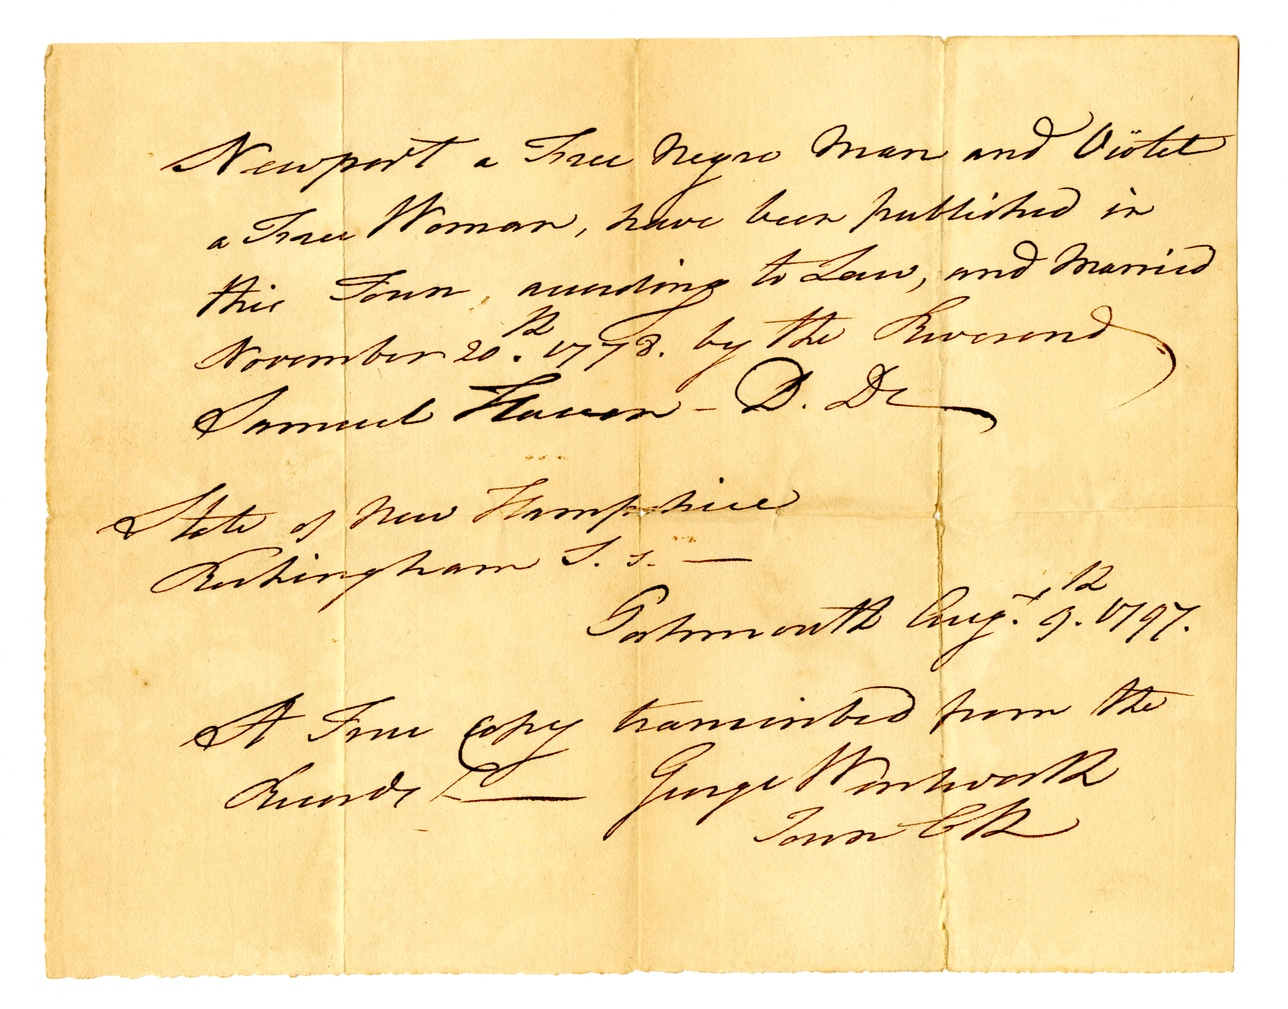 Newport a Free Negro Man and Violet
a Free Woman, have been published in
this Town, acording to Law, and Married
November 20th. 1778. by the Reverend
Samuel Haven - D. D.
State of New Hampshire
Rockingham S. s. —
Portsmouth Augt. 9th. 1797.
A True Copy transcribed from the
Records
George Wentworth
Town Clk